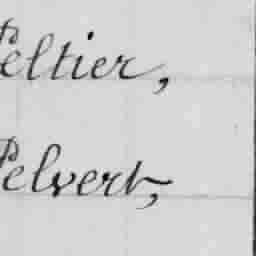 Peltier,
Pelvert,